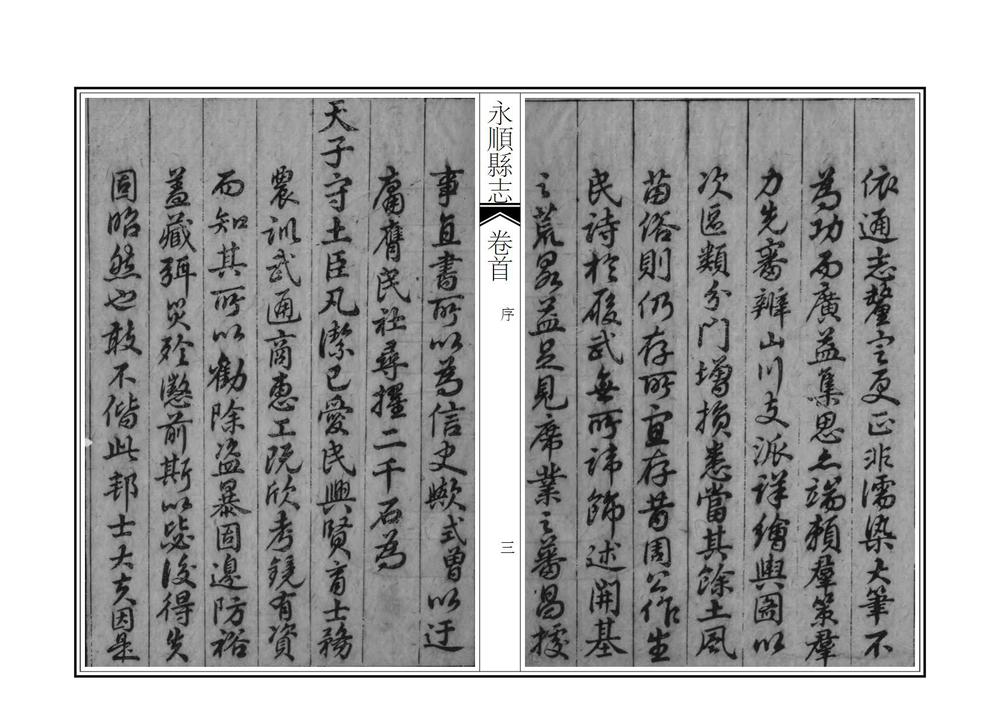 依通志釐定更正非濡染大筆不
為功而廣益集思之端賴羣策羣
力先審辨山川支派詳繪輿圖以
次區類分門增損悉當其餘土風
苗俗則仍存所宜存昔周公作生
民詩於履武無所諱飾述開基
之荒畧益足見席業之蕃昌據
永順縣志
卷首
序
三
事直書所以為信史歟式曾以迂
庸膺民社尋擢二千石為
天子守土臣凡潔己愛民興賢育士務
農訓武通商惠工既欣考鏡有資
而知其所以勸除盜暴固邊防裕
蓋藏弭災矜懲前斯以毖後得失
固昭然也敢不偕此邦士大夫因是